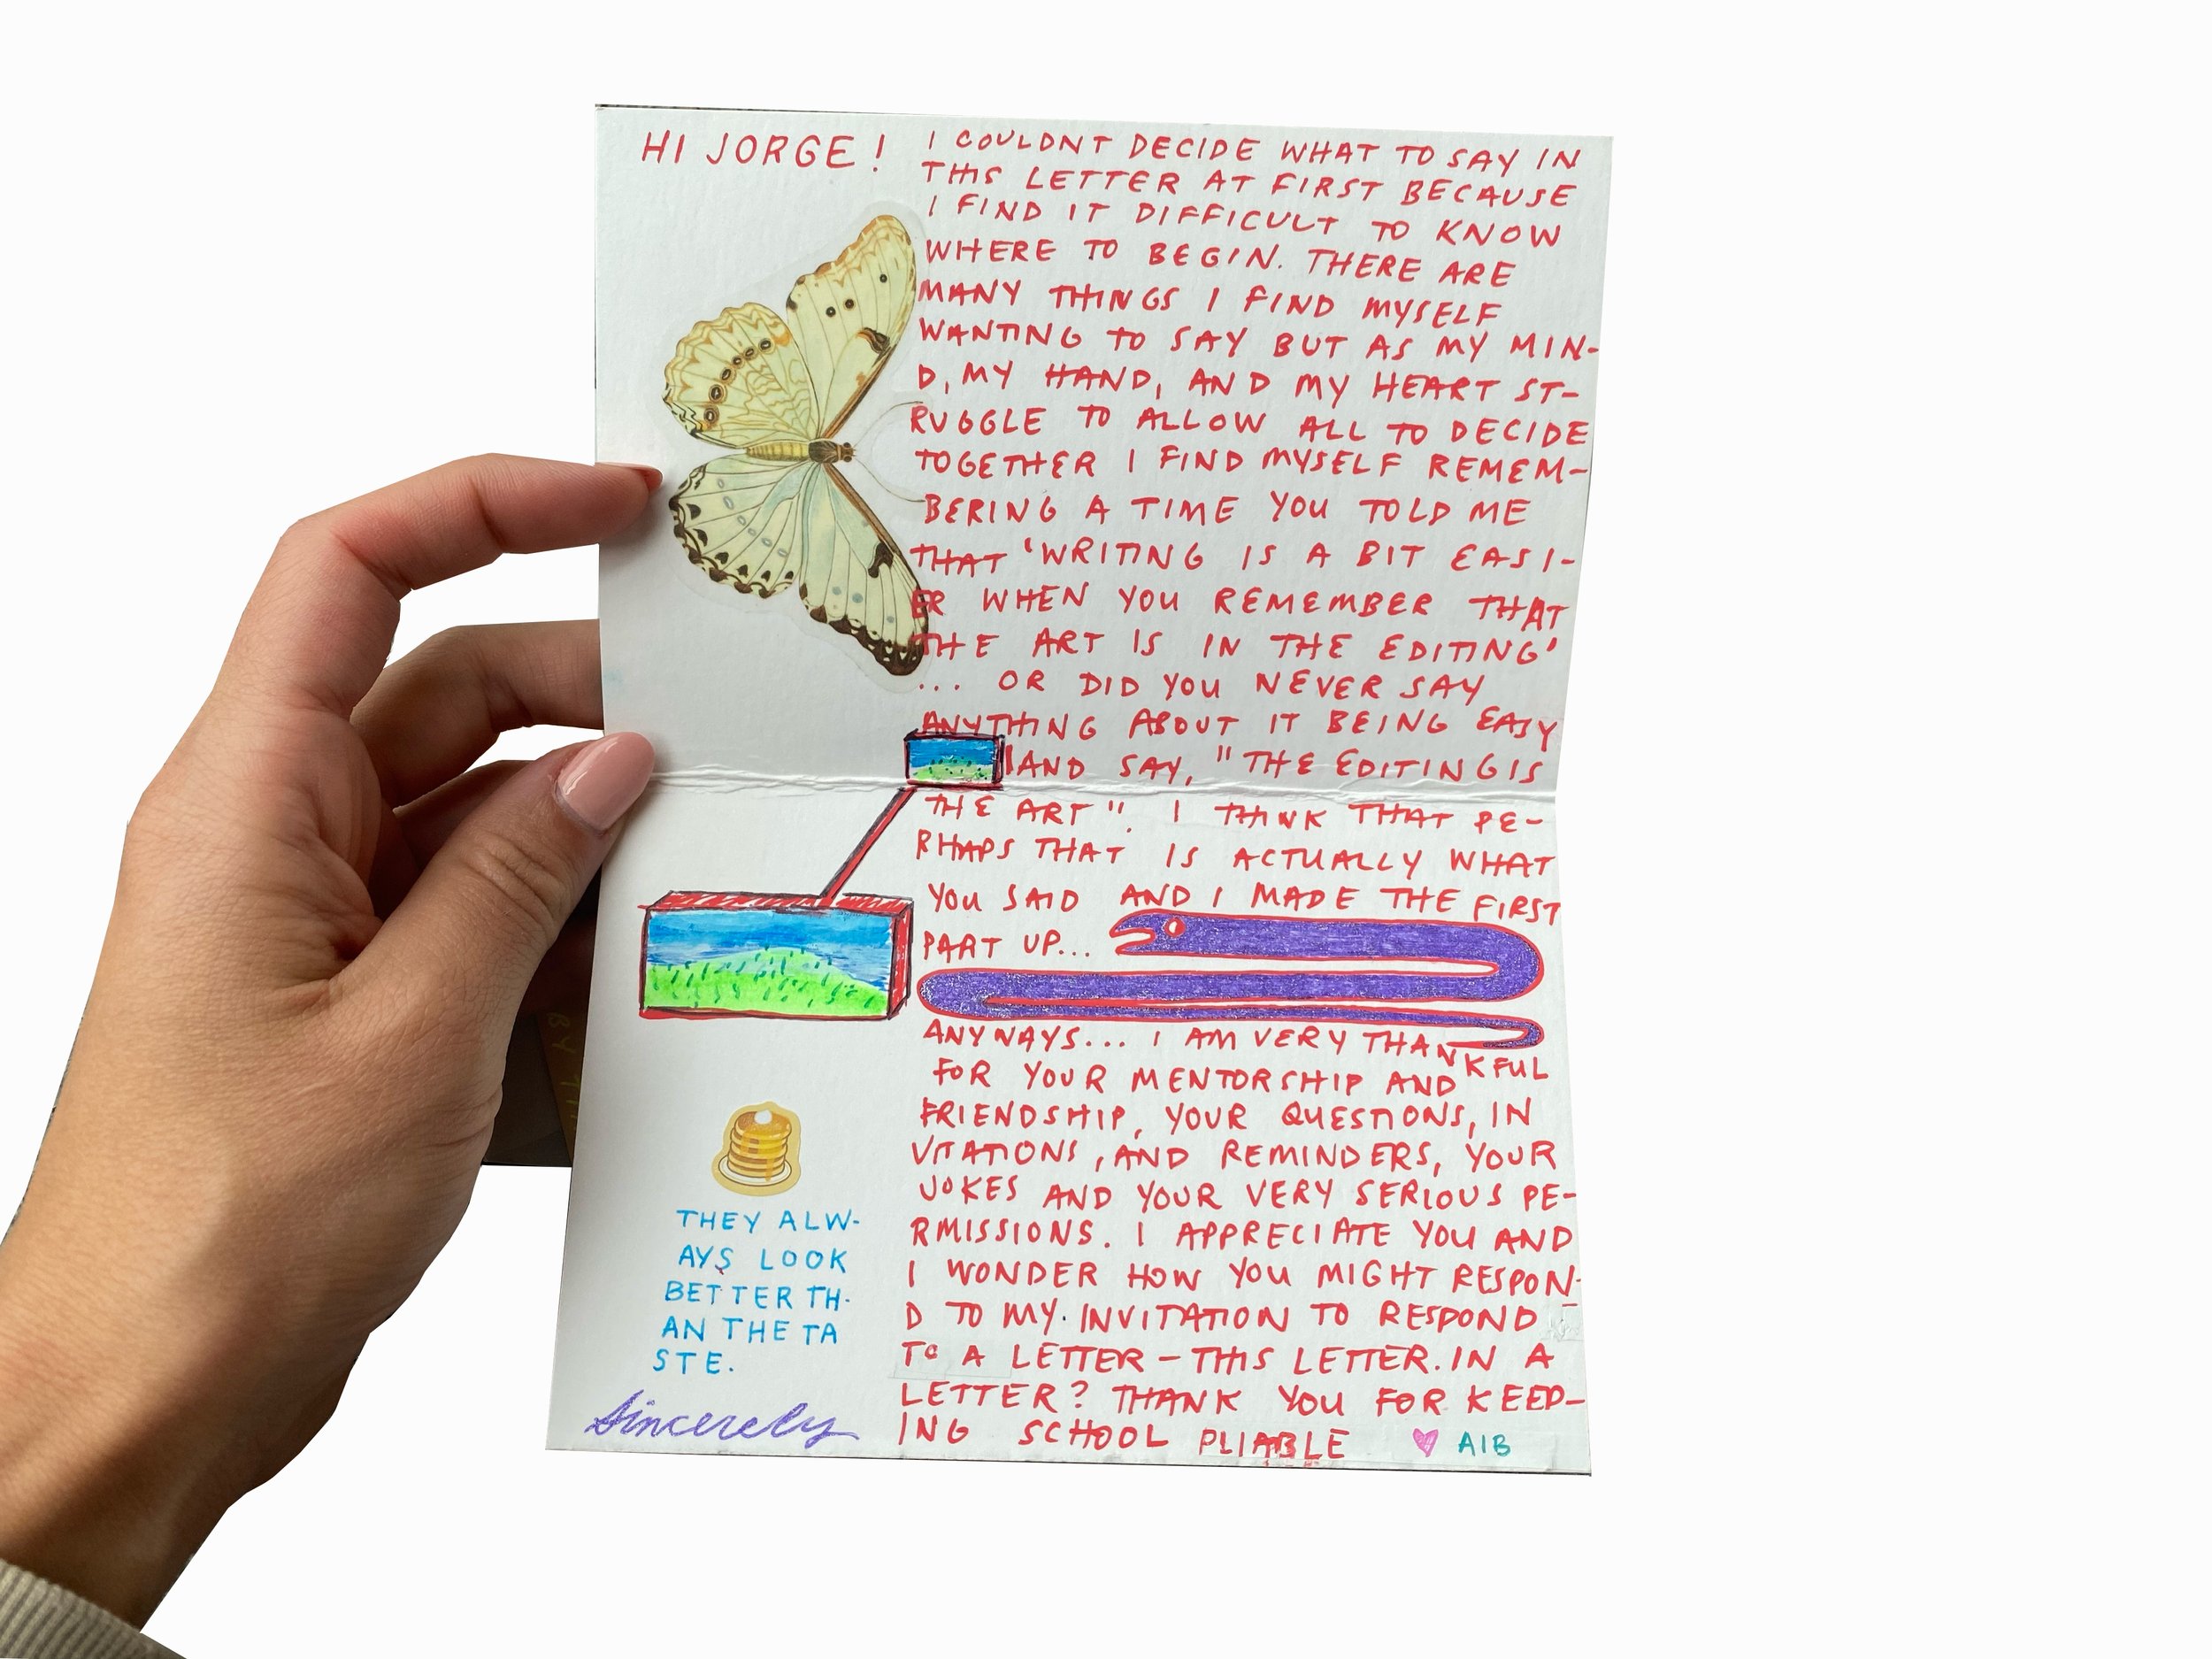 HI JORGE!
I COULDNT DECIDE WHAT TO SAY IN
THIS LETTER AT FIRST BECAUSE
I FIND IT DIFFICULT TO KNOW
WHERE TO BEGIN. THERE ARE
MANY THINGS I FIND MYSELF
WANTING TO SAY BUT AS MY MIN-
D, MY HAND, AND MY HEART ST-
RUGGLE TO ALLOW ALL TO DECIDE
TOGETHER I FIND MYSELF REMEM-
BERING A TIME YOU TOLD ME
THAT 'WRITING IS A BIT EASI-
ER WHEN YOU REMEMBER THAT
THE ART IS IN THE EDITING'
... OR DID YOU NEVER SAY
ANYTHING ABOUT IT BEING EASY
AND SAY, "THE EDITING IS
THE ART". I THINK THAT PE-
RHAPS THAT IS ACTUALLY WHAT
YOU SAID AND I MADE THE FIRST
PART UP...
ANYWAYS... I AM VERY THANKFUL
FOR YOUR MENTORSHIP AND
FRIENDSHIP, YOUR QUESTIONS, IN
VITATIONS, AND REMINDERS, YOUR
JOKES AND YOUR VERY SERIOUS PE-
RMISSIONS. I APPRECIATE YOU AND
I WONDER HOW YOU MIGHT RESPON-
D TO MY INVITATION TO RESPOND
TO A LETTER - THIS LETTER. IN A
LETTER? THANK YOU FOR KEEP-
ING SCHOOL PLIABLE
THEY ALW-
AYS LOOK
BETTER TH-
AN THE TA
STE.
Sincerely
AIB